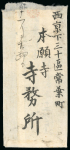 西京下三十區常葉町
本願寺
寺務所